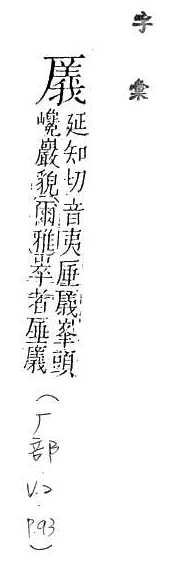 字彙
㕒
延知切音夷厜㕒峯頭
巉巖貌爾雅崒者厜㕒
(厂部 V.2 P.93)